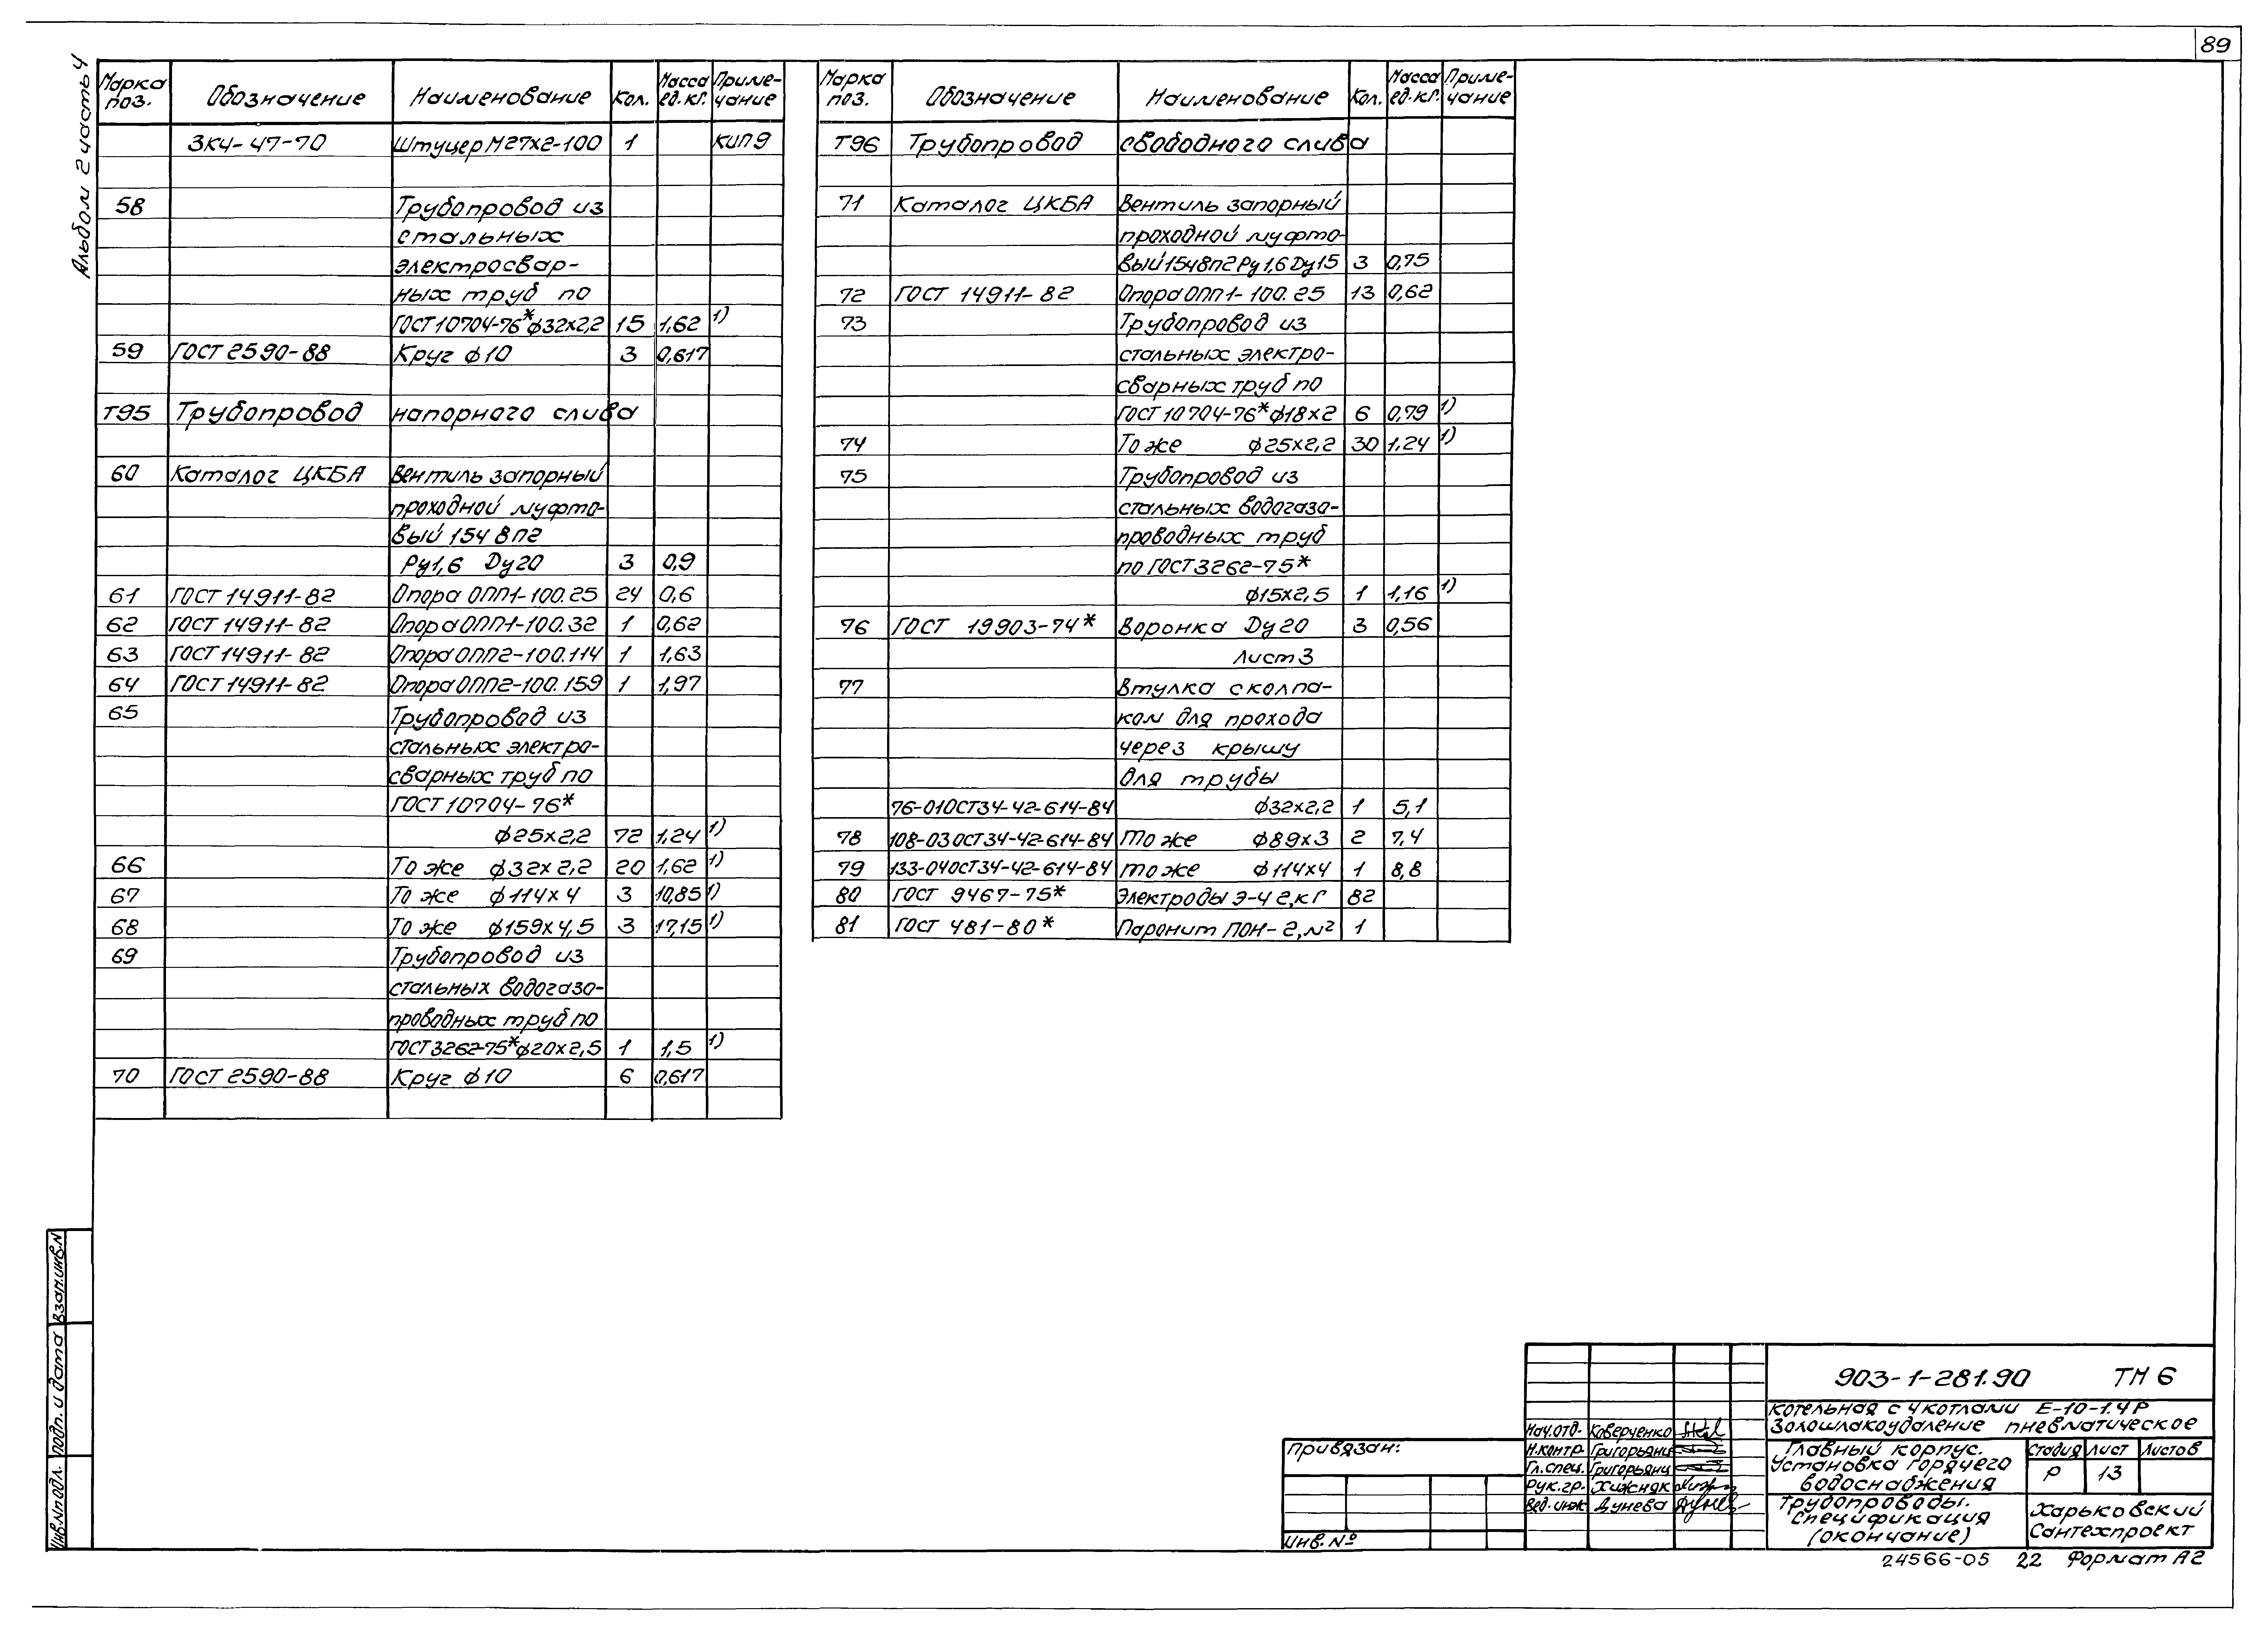 89
Альбом 2 часть 4
Марка поз. Обозначение Наименование Кол. Масса ед. кг. Примечание
ЗК4-47-70 Штуцер М27х2-100 1 КИП9
58 Трубопровод из
стальных
электросвар-
ных труб по
ГОСТ 10704-76* ф32х2,2 15 1,62 1)
59 ГОСТ 2590-88 Круг ф10 3 0,617
Т95 Трубопровод напорного слива
60 Каталог ЦКБА Вентиль запорный
проходной муфто-
вый 15ч 8п2
Ру1,6 Ду20 3 0,9
61 ГОСТ 14911-82 Опора ОПП1-100.25 24 0,6
62 ГОСТ 14911-82 Опора ОПП1-100.32 1 0,62
63 ГОСТ 14911-82 Опора ОПП2-100.114 1 1,63
64 ГОСТ 14911-82 Опора ОПП2-100.159 1 1,97
65 Трубопровод из
стальных электро-
сварных труб по
ГОСТ 10704-76*
ф25х2,2 72 1,24 1)
66 То же ф32х2,2 20 1,62 1)
67 То же ф114х4 3 10,85 1)
68 То же ф159х4,5 3 17,15 1)
69 Трубопровод из
стальных водогазо-
проводных труб по
ГОСТ 3262-75* ф20х2,5 1 1,5 1)
70 ГОСТ 2590-88 Круг ф10 6 0,617
Марка поз. Обозначение Наименование Кол. Масса ед. кг. Примечание
Т96 Трубопровод свободного слива
71 Каталог ЦКБА Вентиль запорный
проходной муфто-
вый 15ч8п2 Ру1,6 Ду15 3 0,75
72 ГОСТ 14911-82 Опора ОПП1-100.25 13 0,62
73 Трубопровод из
стальных электро-
сварных труб по
ГОСТ 10704-76* ф18х2 6 0,79 1)
74 То же ф25х2,2 30 1,24 1)
75 Трубопровод из
стальных водогазо-
проводных труб
по ГОСТ 3262-75*
ф15х2,5 1 1,16 1)
76 ГОСТ 19903-74* Воронка Ду20 3 0,56
Лист 3
77 Втулка с колпа-
ком для прохода
через крышу
для трубы
76-01ОСТ34-42-614-84 ф32х2,2 1 5,1
78 108-03ОСТ34-42-614-84 То же ф89х3 2 7,4
79 133-04ОСТ34-42-614-84 То же ф114х4 1 8,8
80 ГОСТ 9467-75* Электроды Э-42,кг 82
81 ГОСТ 481-80* Паронит ПОН-2,м² 1
Взам.инв.N
Подп. и дата
Инв.Nподл.
Привязан:
Инв.№
Нач.отд. Коверченко
Н.контр. Григорьянц
Гл.спец. Григорьянц
Рук.гр. Хижняк
Вед.инж. Дунева
903-1-281.90 ТМ 6
Котельная с 4 котлами Е-10-1.4Р
Золошлакоудаление пневматическое
Главный корпус.
Установка горячего
водоснабжения
Стадия Лист Листов
Р 13
Трубопроводы.
Спецификация
(окончание)
Харьковский
Сантехпроект
24566-05 22 Формат А2